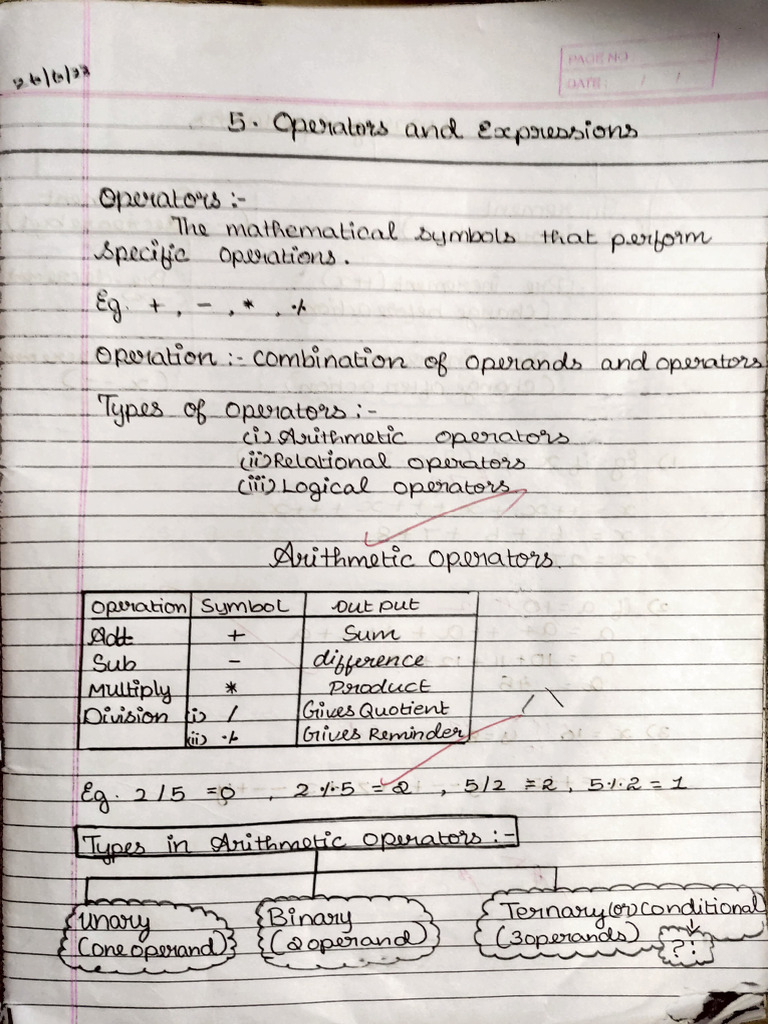 PAGE NO
DATE: / /
5. Operators and Expressions
Operators :-
The mathematical symbols that perform
specific operations.
Eg. +, -, *, %
Operation :- combination of operands and operators
Types of operators :-
(i) Arithmetic operators
(ii) Relational operators
(iii) Logical operators
Arithmetic operators.
Operation Symbol Output
Add + Sum
Sub - difference
Multiply * Product
Division (i) / Gives Quotient
(ii) % Gives Reminder
Eg. 2/5 = 0, 2%5 = 2, 5/2 = 2, 5%2 = 1
Types in Arithmetic operators :-
Unary
(one operand)
Binary
(2 operand)
Ternary (or) conditional
(3 operands)
? :